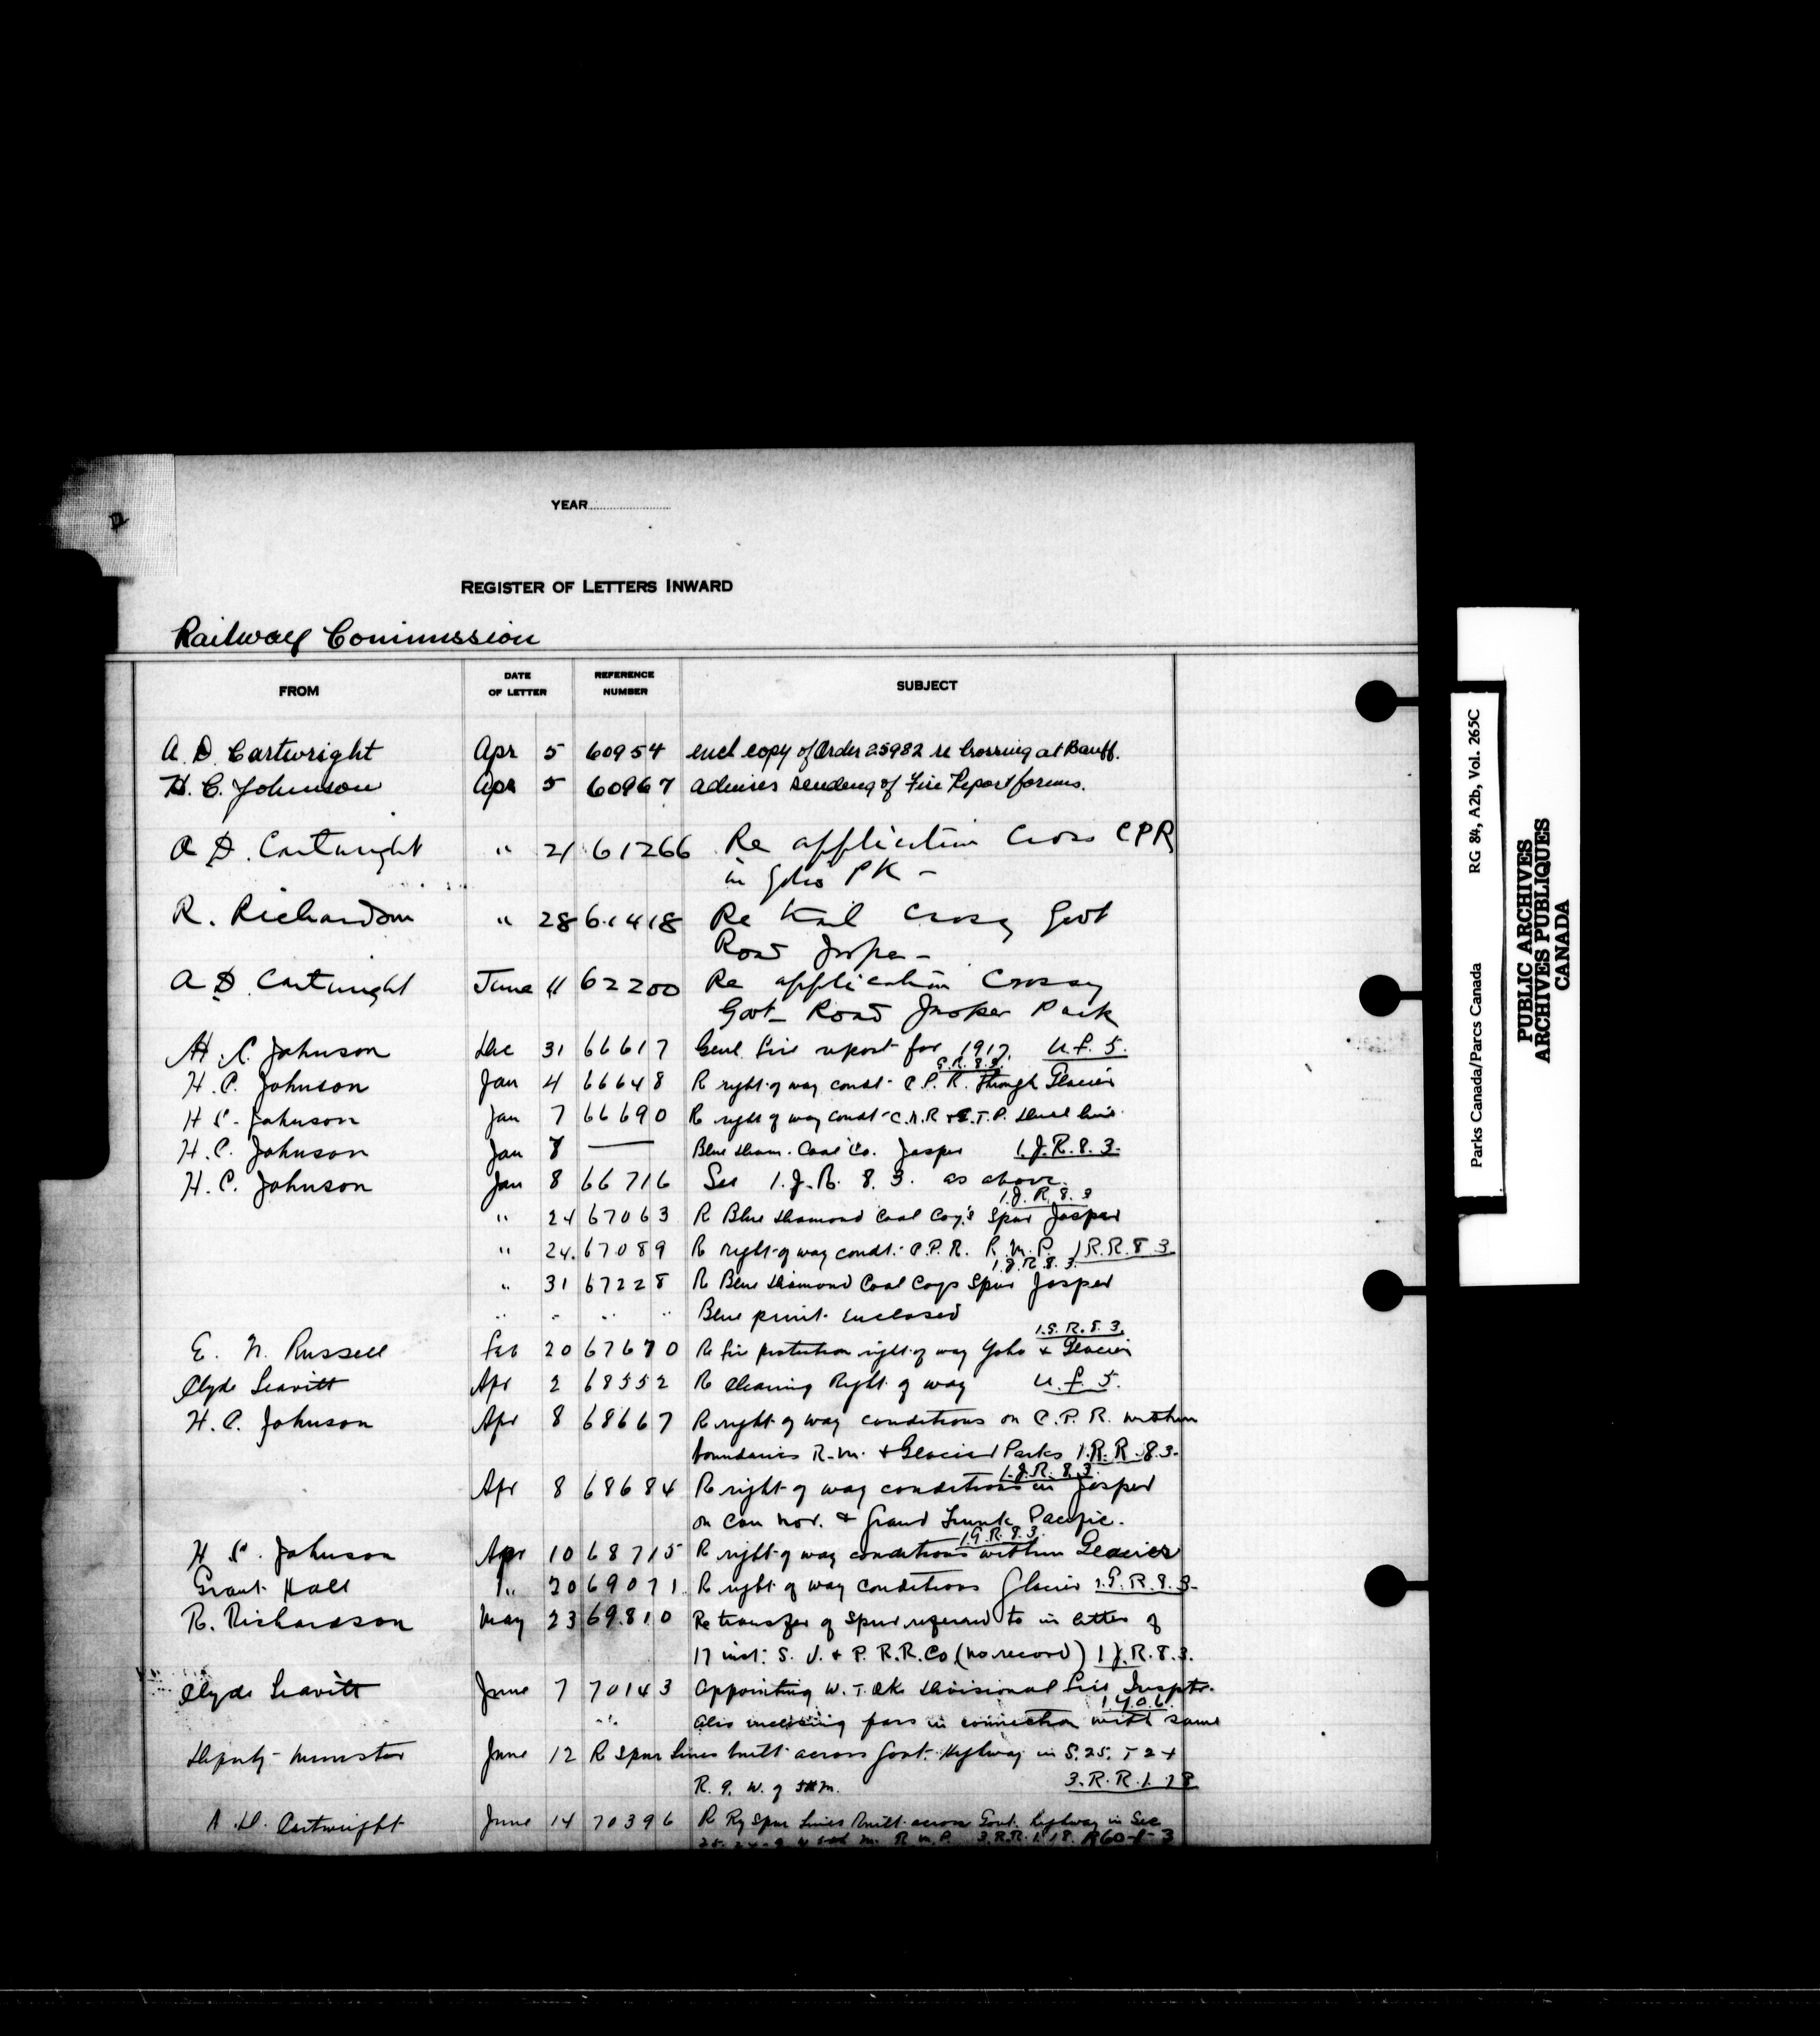 YEAR
REGISTER OF LETTERS INWARD
Railway Commission
FROM DATE OF LETTER REFERENCE NUMBER SUBJECT
A. D. Cartwright Apr 5 60954 encl copy of Order 25982 re Crossing at Banff.
H. C. Johnson Apr 5 60967 advises sending of Fire Report forms.
A D. Cartwright " 21 61266 Re application Cross CPR
in Yoho PK -
R. Richardson " 28 61418 Re trail Crossg Govt
Road Jasper -
A D. Cartwright June 11 62200 Re application Crossg
Govt Road Jasper Park
H. C. Johnson Dec 31 66617 Genl. fire report for 1917. U. f. 5.
G.R.8.3.
H. C. Johnson Jan 4 66648 R right of way condt- C.P.R. through Glacier
H C. Johnson Jan 7 66690 R right of way condt- C.N.R & G.T.P.
H. C. Johnson Jan 8 — Blue Diam. Coal Co. Jasper 1.J.R.8.3.
H. C. Johnson Jan 8 66716 See 1.J.R. 8.3. as above.
1.J.R.8.3
" 24 67063 R Blue Diamond Coal Coy's Spur Jasper
" 24. 67089 R right of way condt.- C.P.R. R.M.P. 1R.R.8.3.
1.J.R.8.3.
" 31 67228 R Blue Diamond Coal Coys Spur Jasper
" " " " Blue print enclosed
1.G.R.8.3.
E. N. Russell Feb 20 67670 R fire protection right of way Yoho & Glacier
Clyde Leavitt Apr 2 68552 R cleaning Right of way U. f. 5.
H. C. Johnson Apr 8 68667 R right of way conditions on C.P.R. within
boundaries R.M. & Glacier Parks 1.R.R.8.3.
1.J.R.8.3.
Apr 8 68684 R right of way conditions in Jasper
on Can Nor. & Grand Trunk Pacific.
1.G.R.8.3.
H C. Johnson Apr 10 68715 R right of way conditions within Glacier
Grant Hall " 20 69071 R right of way conditions Glacier 1.G.R.8.3.
R. Richardson May 23 69810 Re transfer of Spur referred to in letter of
17 inst: S. V. & P. R.R. Co (no record) 1J.R.8.3.
Clyde Leavitt June 7 70143 Appointing W. T. Oke Divisional Fire Insptr.
Also enclosing pass in connection with same
Deputy Minister June 12 R Spur lines built across Govt. Highway in S.25. T24
R. 9. W. of 5th M. 3.R.R.1.18
A. D. Cartwright June 14 70396 R Ry Spur Lines built across Govt. Highway in Sec
25-24-9 W 5th M. R M P. 3.R.R.1.18. R60-f-3
Parks Canada/Parcs Canada RG 84, A2b, Vol. 265C
PUBLIC ARCHIVES
ARCHIVES PUBLIQUES
CANADA